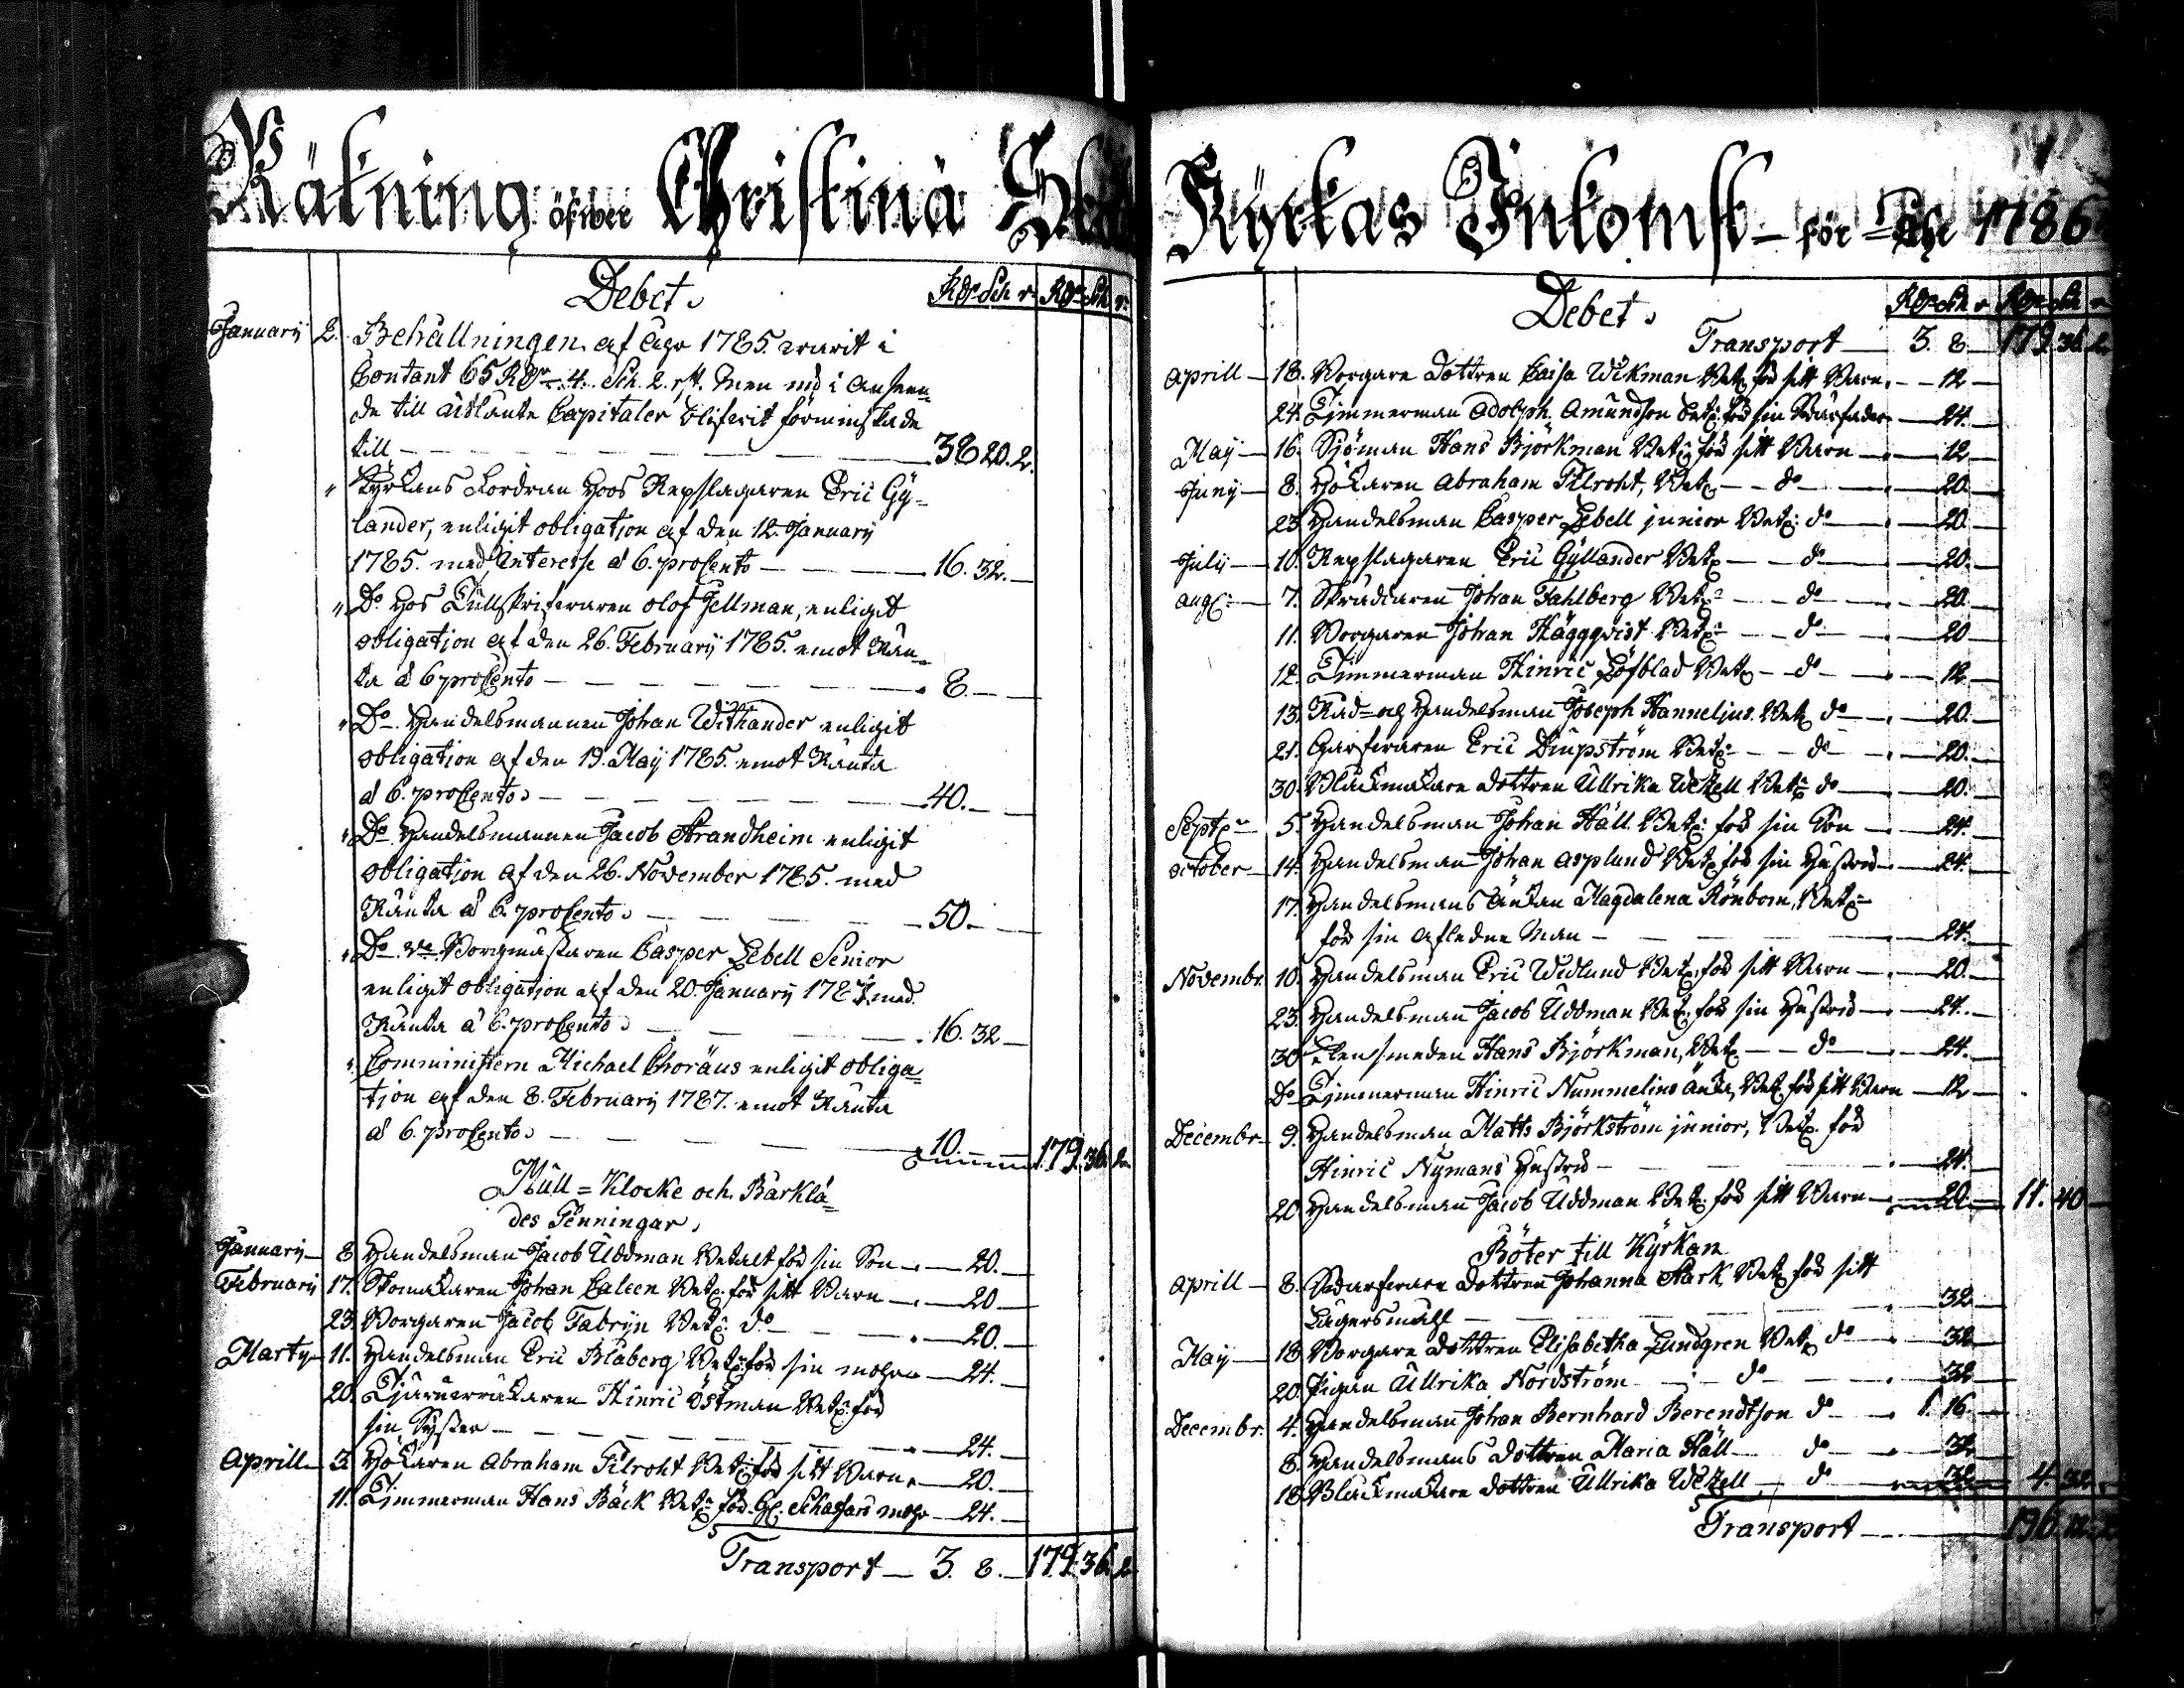 Räkning öfwer Christinæ Stads
Debet.
Rdr Sch r. Rdr Sch r.
Januarij 2. Behållningen af Åhr 1785. warit i
Contant 65 Rdr. 4. Sch. 2. rst. Men nu i anseen-
de till utlånte Capitaler blifwit förminskade
till 38 20. 2.
" Kyrkans Fordran hoos Repslagaren Eric Gy-
lander, enligit obligation af den 12. Januarij
1785. med Interesse á 6. proCento 16. 32.
" Do hos Tullskrifwaren Olof Jellman, enligit
obligation af den 26. Februarij 1785. emot Rän-
ta á 6 proCento 8.
" Do Handelsmannen Johan Withander enligit
obligation af den 19. Maij 1785. emot Ränta
á 6. proCento 40.
" Do Handelsmannen Jacob Strandheim enligit
obligation af den 26. November 1785. med
Ränta á 6. proCento 50.
" Do Borgmästaren Casper Lebell Senior
enligit obligation af den 20. Januarij med
Ränta á 6. proCento 16. 32
" Comministern Michael Choræus enligit obliga-
tion af den 8. Februarij 1787. emot Ränta
á 6. proCento 10. 179. 36. 2.
Mull= Klocke och Bårklä-
des Penningar,
Januarij 8. Handelsman Jacob Uddman Betalt för sin Son 20.
Februarij 17. Skomakaren Johan Caleen Bet: för sitt Barn 20
23. Borgaren Jacob Fabrijn Bet: do 20.
Marty 11. Handelsman Eric Blåberg Bet: för sin moder 24.
20. Tjärwräkaren Hinric Östman Bet: för
sin Syster 24.
Aprill 3. Hökaren Abraham Filroht Bet: för sitt Barn 20.
11. Timmerman Hans Bäck Bet: för Schafars moder 24.
Transport 3. 8. 179. 36. 2
Kyrkas Inkomst för Åhr 1786
Debet.
Rdr Sch r Rdr Sch r
Transport 3. 8 179. 36. 2.
Aprill 18. Borgare dottren Caisa Wikman Bet: för sitt Barn 12
24. Timmerman Adolph Amundson Bet: för sin Swärfader 24.
Maij 16. Sjöman Hans Björkman Bet: för sitt Barn 12
Junij 8. Hökaren Abraham Filroht, Bet: do 20.
23. Handelsman Casper Lebell junior Bet: do 20.
Julij 10. Repslagaren Eric Gyllander Bet: do 20.
Aug: 7. Skräddaren Johan Fahlberg Bet: do 20.
11. Borgaren Johan Häggqvist Bet: do 20
12. Timmerman Hinric Löfblad Bet: do 12
13. Råd= och Handelsman Joseph Hanneljus Bet: do 20.
21. Garfwaren Eric Diupström Bet: do 20.
30. Klåckmakare dottren Ullrika Wetzell Bet: do 20.
Sept: 5. Handelsman Johan Häll Bet: för sin Son 24.
October 14. Handelsman Johan Asplund Bet: för sin Hustru 24.
17. Handelsmans Änkan Magdalena Rönbom, Bet:
för sin afledne Man 24.
Novembr. 10. Handelsman Eric Widlund Bet: för sitt Barn 20.
23. Handelsman Jacob Uddman Bet: för sin Hustru 24.
30. Klensmeden Hans Björkman, Bet: do 24.
Do Timmerman Hinric Nummelins Änka, Bet: för sitt Barn 12
Decembr. 9. Handelsman Matts Björkström junior, Bet: för
Hinric Nymans Hustru 24.
20. Handelsman Jacob Uddman Bet: för sitt Barn 20. 11. 40
Böter till Kyrkan
Aprill 8. Swarfware dottren Johanna Stark Bet: för sitt
Lägersmåhl 32
Maij 18. Borgare dottren Elisabetha Lundgren Bet: do 32
20. Pigan Ullrika Nordström do 32
Decembr. 4. Handelsman Johan Bernhard Berendtson do 1. 16.
8. Handelsmans dottren Maria Häll do 32
18. Klåckmakare dottren Ullrika Wetzell do 32 4. 32.
Transport 196. 12. 2